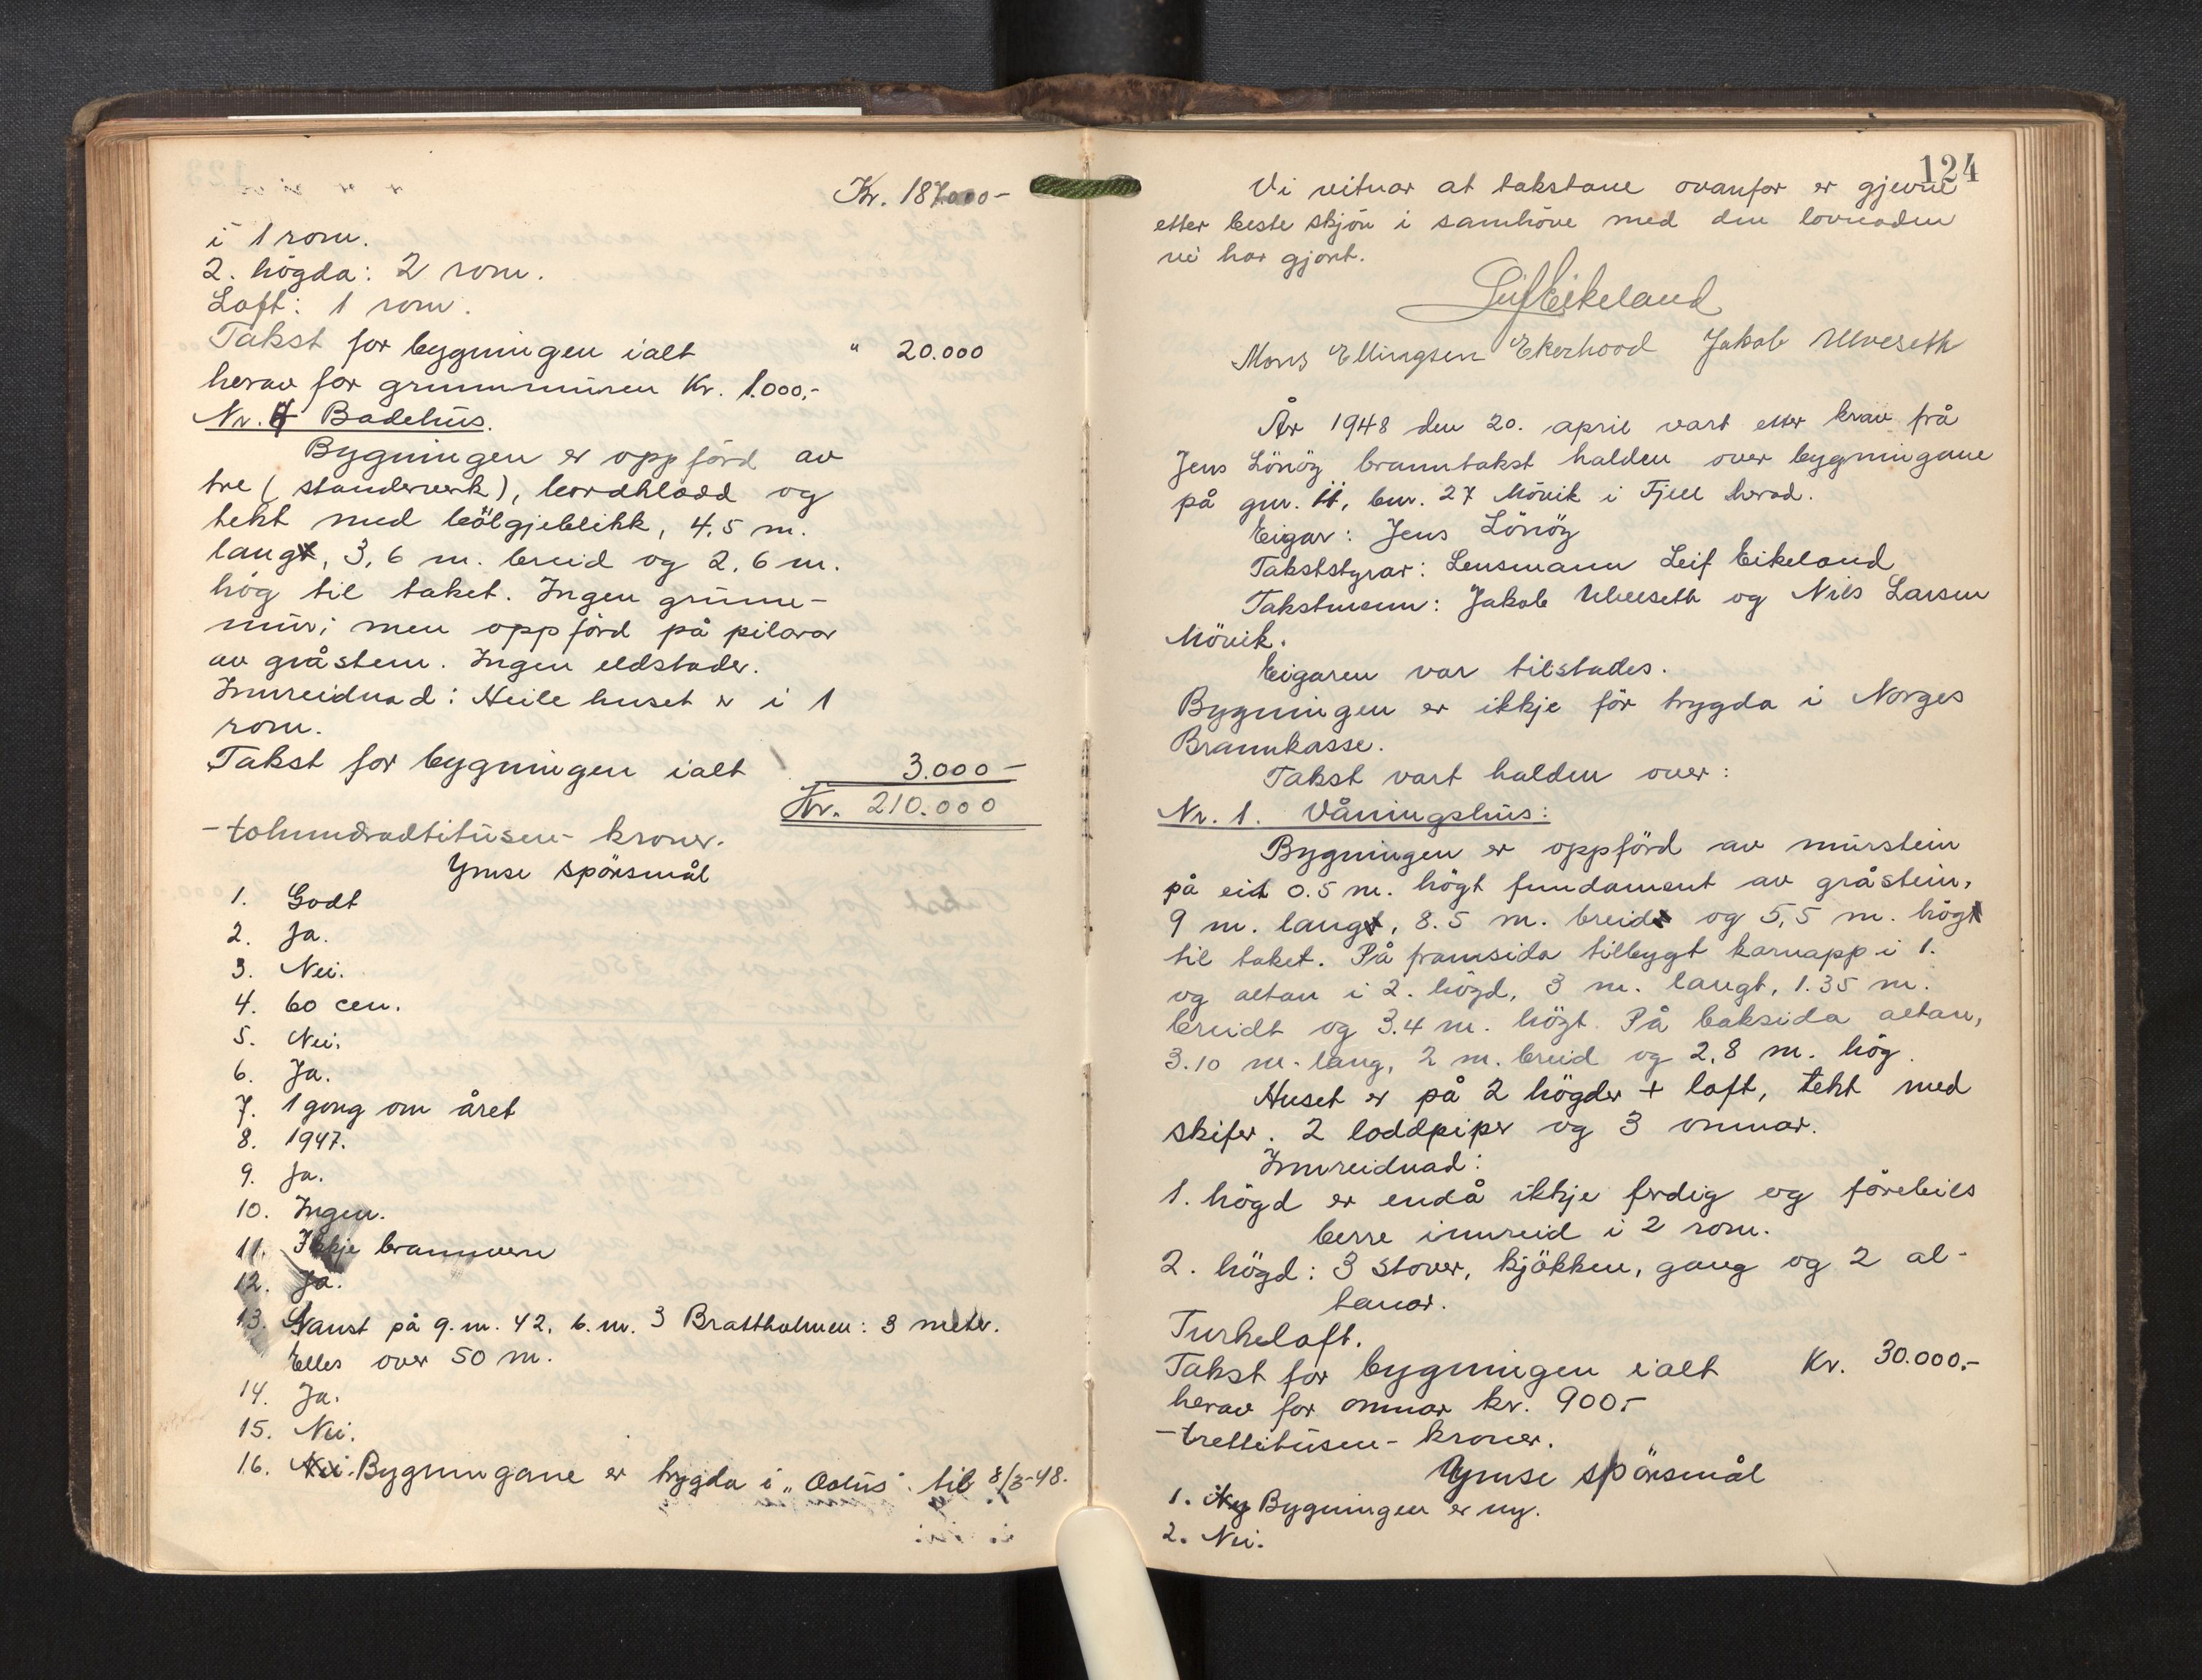 Kr. 187.000-
i 1 rom.
2. högda: 2 rom.
Loft: 1 rom.
Takst for bygningen ialt " 20.000
herav for grunnmüren Kr. 1.000,-
Nr. 4 Badehüs.
Bygningen er oppförd av
tre (standerverk), bordkledd og
tekt med bölgjeblikk, 4,5 m.
lang, 3,6 m. breid og 2,6 m.
hög til taket. Ingen grünn-
mür; men oppförd på pilarar
av gråstein. Ingen eldstader.
Innreidnad: Heile huset er i 1
rom.
Takst for bygningen ialt 3.000-
Kr. 210.000
-tohundradtitüsen- kroner.
Ymse spörsmål
1. Godt
2. Ja.
3. Nei.
4. 60 cm.
5. Nei.
6. Ja.
7. 1 gong om året
8. 1947.
9. Ja.
10. Ingen.
11. Ikkje brannvern
12. Ja.
13. Naust på g.nr. 42, b.nr. 3 Brattholmen: 3 meter.
Elles over 50 m.
14. Ja.
15. Nei.
16. Bygningane er trygda i til 8/3-48.
124
Vi vitnar at takstane ovanfor er gjevne
etter beste skjön i samhöve med den lovnaden
vi har gjort.
Leif Eikeland
Mons Ellingsen Ekerhovd Jakob Ulveseth
År 1948 den 20. april vart etter krav frå
Jens Lönöy branntakst halden over bygningane
på gnr. 11, bnr. 27 Mövik i Fjell herad.
Eigar: Jens Lönöy
Takststyrar: Lensmann Leif Eikeland
Takstmenn: Jakob Ulveseth og Nils Larsen
Mövik.
Eigaren var tilstades.
Bygningen er ikkje för trygda i Norges
Brannkasse.
Takst vart halden over:
Nr. 1. Våningshüs:
Bygningen er oppförd av mürstein
på eit 0.5 m. högt fundament av gråstein,
9 m. lang, 8.5 m. breid og 5,5 m. hög
til taket. På framsida tilbygt karnapp i 1.
og altan i 2. högd, 3 m. langt, 1.35 m.
breidt og 3.4 m. högt. På baksida altan,
3.10 m. lang, 2 m. breid og 2,8 m. hög.
Huset er på 2 högder + loft, tekt med
skifer. 2 loddpiper og 3 omnar.
Innreidnad:
1. högd er endå ikkje ferdig og förebils
berre innreid i 2 rom.
2. högd: 3 stover, kjökken, gang og 2 al-
tanar.
Turkeloft.
Takst for bygningen ialt Kr. 30.000,-
herav for omnar kr. 900,-
-trettitüsen- kroner.
Ymse spörsmål
1. Ny Bygningen er ny.
2. Nei.